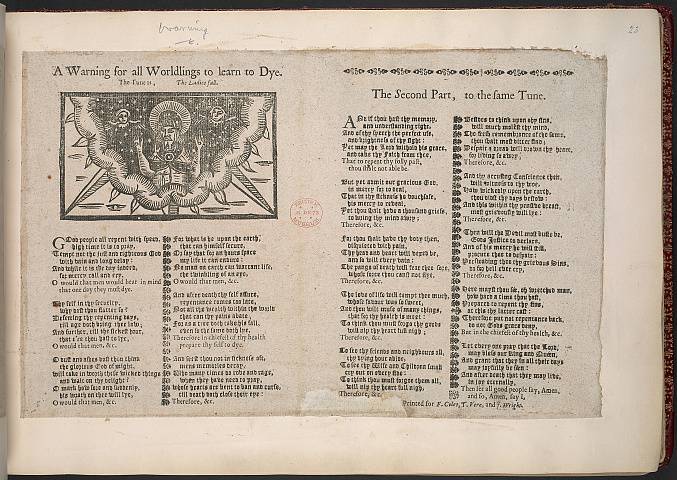 warning
23
A Warning for all Worldlings to learn to Dye.
The Tune is, The Ladies fall.
GOod people all repent with speed,
high time it is to pray,
Tempt not the just and righteous God
with vain and long delay:
And while it is the day indeed,
for mercy call and cry,
O would that men would bear in mind
that one day they must dye.
My self in thy security,
why dost thou flatter so?
Deferring thy repenting days,
till age doth bring thee low,
And further, till the sickest hour,
that e're thou hast to dye,
O would that men, &c.
O dust and ashes dost thou think
the glorious God of might,
will take in worth these wicked things
and wait on thy delight?
O mark how fore and suddenly,
his wrath on thee will flye,
O would that men, &c.
For what is he upon the earth,
that can himself secure,
Or say that for an hours space
my life it can endure:
No man on earth can warrant life,
the twinkling of an eye,
O would that men, &c.
And since death thy self assure,
repentance comes too late,
Not all the wealth within the world
that can thy pains abate:
For as a tree doth take his fall,
even so the same doth lye,
Therefore in chiefest of thy health
prepare thy self to dye.
And seest thou not in sickness oft,
mens memories decay,
What many times do rave and rage,
when they have need to pray,
whose hearts are bent to ban and curse,
till death doth close their eye:
Therefore, &c.
The Second Part, to the same Tune.
ANd if thou hast thy memory,
and understanding right,
And of thy speech the perfect use,
and brightness of thy sight:
Yet may the Lord withold his grace,
and take thy Faith from thee,
That to repent thy folly past,
thou shalt not able be.
But yet admit our gracious God,
in mercy for to deal,
That in thy sickness he vouchsafe,
his mercy to reveal,
Yet thou shalt have a thousand griefs,
to bring thy mind away:
Therefore, &c.
For thou shalt have thy body then,
disquieted with pain,
Thy head and heart will vexed be,
and so will every vein:
The pangs of death will fear thee sore,
whose force thou canst not flye.
Therefore, &c.
The love of life will tempt thee much,
whose favour was so sweet,
And thou wilt muse of many things,
that for thy health is meet:
To think thou must forgo thy goods
will nip thy heart full nigh;
Therefore, &c.
To see thy friends and neighbours all,
thy dying hour abide:
To see thy Wife and Children sunk
cry out on every side:
To think thou must forgoe them all,
will nip thy heart full nigh,
Therefore, &c.
Besides to think upon thy sins,
will much molest thy mind,
The fresh remembrance of the same,
thou shalt most bitter find;
Despair a while will drown thy heart,
for living so awry;
Therefore, &c.
And thy accusing Conscience then,
will witness to thy woe,
How wickedly upon the earth,
thou didst thy days bestow:
And this within thy pensive breast,
most grievously will lye:
Therefore, &c.
Then will the Devil most busie be,
Gods Justice to declare,
And of his mercy he will tell,
procure thee to despair:
Perswading thee thy grievous Sins,
do for hell ever cry,
Therefore, &c.
Here mayst thou see, oh wretched man,
how hard a thing thou hast,
Prepared to repent thy sins,
at this thy latter cast:
Therefore put not repentance back,
to use Gods grace deny,
But in the chiefest of thy health, &c.
Let every one pray that the Lord,
may bless our King and Queen,
And grant that they in all their days
may joyfully be seen:
And after death that they may live,
in joy eternally,
Then let all good people say, Amen,
and so, Amen, say I.
Printed for F. Coles, T. Vere, and J. Wright.